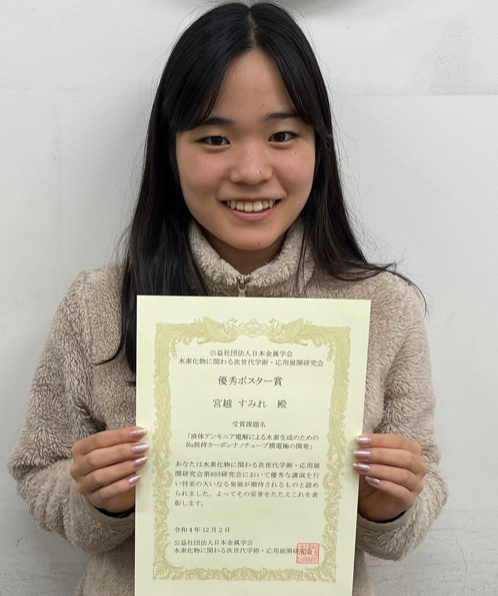 公益社団法人日本金属学会
水素化物に関わる次世代学術・応用展開研究会
優秀ポスター賞
宮越 すみれ 殿
受賞課題名
「液体アンモニア電解による水素生成のための
Ru担持カーボンナノチューブ膜電極の開発」
あなたは水素化物に関わる次世代学術・応用展
開研究会第8回研究会において優秀な講演を行
い将来の大いなる発展が期待されるものと認め
られました。よってその栄誉をたたえこれを表
彰します。
令和4年12月2日
公益社団法人日本金属学会
水素化物に関わる次世代学術・応用展開研究会